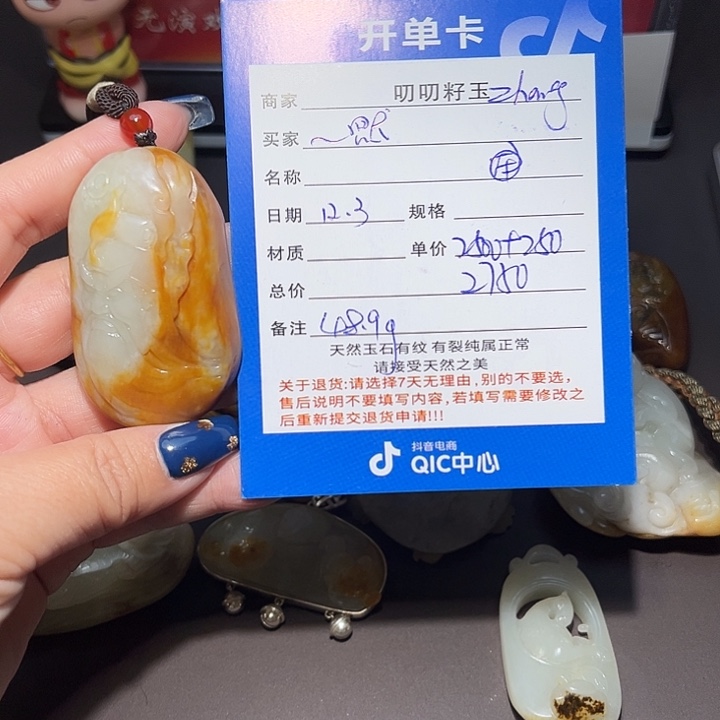 无演戏
开单卡
商家 叨叨籽玉zhang
买家
名称
日期 12.3 规格
材质 单价 2500+250
总价 2750
备注 48.9g
天然玉石有纹 有裂纯属正常
请接受天然之美
关于退货:请选择7天无理由,别的不要选,
售后说明不要填写内容,若填写需要修改之
后重新提交退货申请!!!
抖音电商
QIC中心